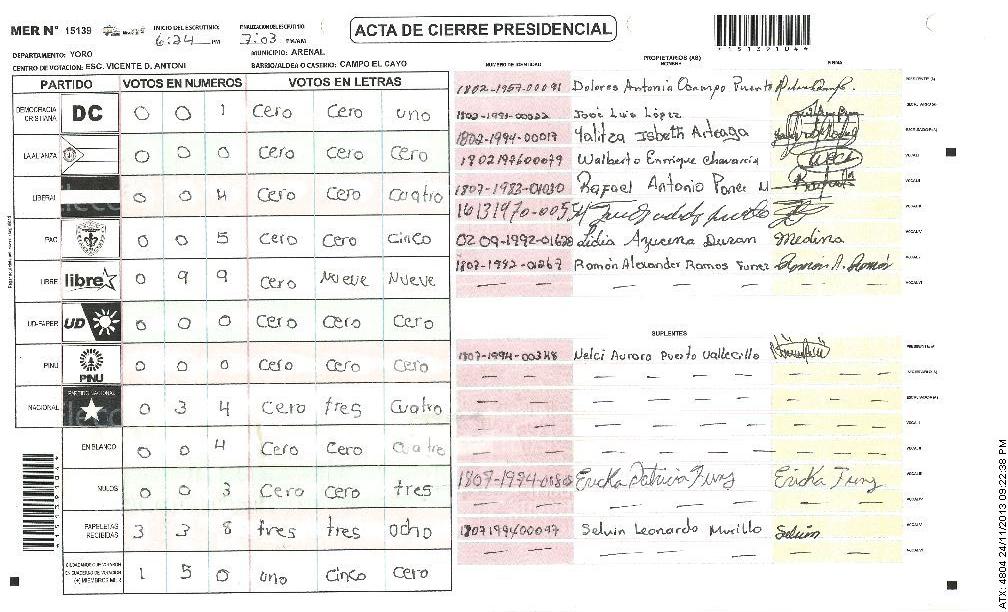 MER N° 15139
INICIO DEL ESCRUTINIO: 6:24 PM
FINALIZACION DEL ESCRUTINIO: 7:03 PM/AM
ACTA DE CIERRE PRESIDENCIAL
DEPARTAMENTO: YORO
MUNICIPIO: ARENAL
CENTRO DE VOTACION: ESC. VICENTE D. ANTONI
BARRIO/ALDEA O CASERIO: CAMPO EL CAYO
PARTIDO VOTOS EN NUMEROS VOTOS EN LETRAS
DEMOCRACIA CRISTIANA DC 0 0 1 Cero Cero uno
LA ALIANZA 0 0 0 Cero Cero Cero
LIBERAL 0 0 4 Cero Cero Cuatro
PAC 0 0 5 Cero Cero Cinco
LIBRE libre 0 9 9 Cero Nueve Nueve
UD-FAPER UD 0 0 0 Cero Cero Cero
PINU PINU 0 0 0 Cero Cero Cero
NACIONAL PARTIDO NACIONAL 0 3 4 Cero tres Cuatro
EN BLANCO 0 0 4 Cero Cero Cuatro
NULOS 0 0 3 Cero Cero tres
PAPELETAS RECIBIDAS 3 3 8 tres tres ocho
CIUDADANOS QUE VOTARON EN CUADERNO DE VOTACION (+) MIEMBROS MER 1 5 0 uno Cinco Cero
PROPIETARIOS (AS)
NUMERO DE IDENTIDAD NOMBRE FIRMA
1802-1957-00091 Dolores Antonia Ocampo Puerto PRESIDENTE (A)
José Luis López SECRETARIO (A)
1802-1994-00017 Yalitza Isbeth Arteaga ESCRUTADOR (A)
1802197600079 Walberto Enrique Chavarria VOCAL I
1807-1983-01030 Rafael Antonio Ponce M VOCAL II
16131970-0055
0209-1992-01628 Lidia Azucena Duran Medina VOCAL IV
1807-1992-01267 Ramón Alexander Ramos Funez Ramón A. Ramón VOCAL V
— — — — — — — — VOCAL VI
SUPLENTES
1807-1994-00348 Nelci Aurora Puerto Vallecillo PRESIDENTE (A)
— — — — — — — — SECRETARIO (A)
— — — — — — — — ESCRUTADOR (A)
— — — — — — — — VOCAL I
— — — — — — — — VOCAL II
Ericka Patricia Funz Ericka Funz VOCAL III
— — — — — — — — VOCAL IV
1807199400097 Selvin Leonardo Murillo Selvin VOCAL V
— — — — — — — — VOCAL VI
ATX: 4804 24/11/2013 09:22:38 PM